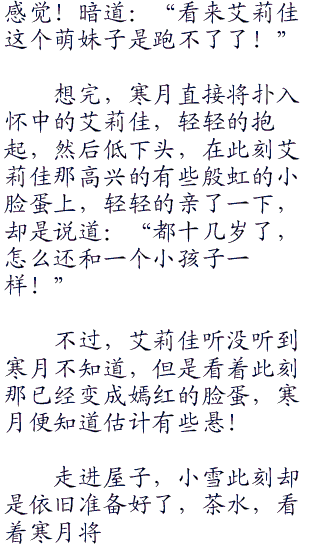 感觉！暗道：“看来艾莉佳
这个萌妹子是跑不了了！”
想完，寒月直接将扑入
怀中的艾莉佳，轻轻的抱
起，然后低下头，在此刻艾
莉佳那高兴的有些殷虹的小
脸蛋上，轻轻的亲了一下，
却是说道：“都十几岁了，
怎么还和一个小孩子一
样！”
不过，艾莉佳听没听到
寒月不知道，但是看着此刻
那已经变成嫣红的脸蛋，寒
月便知道估计有些悬！
走进屋子，小雪此刻却
是依旧准备好了，茶水，看
着寒月将